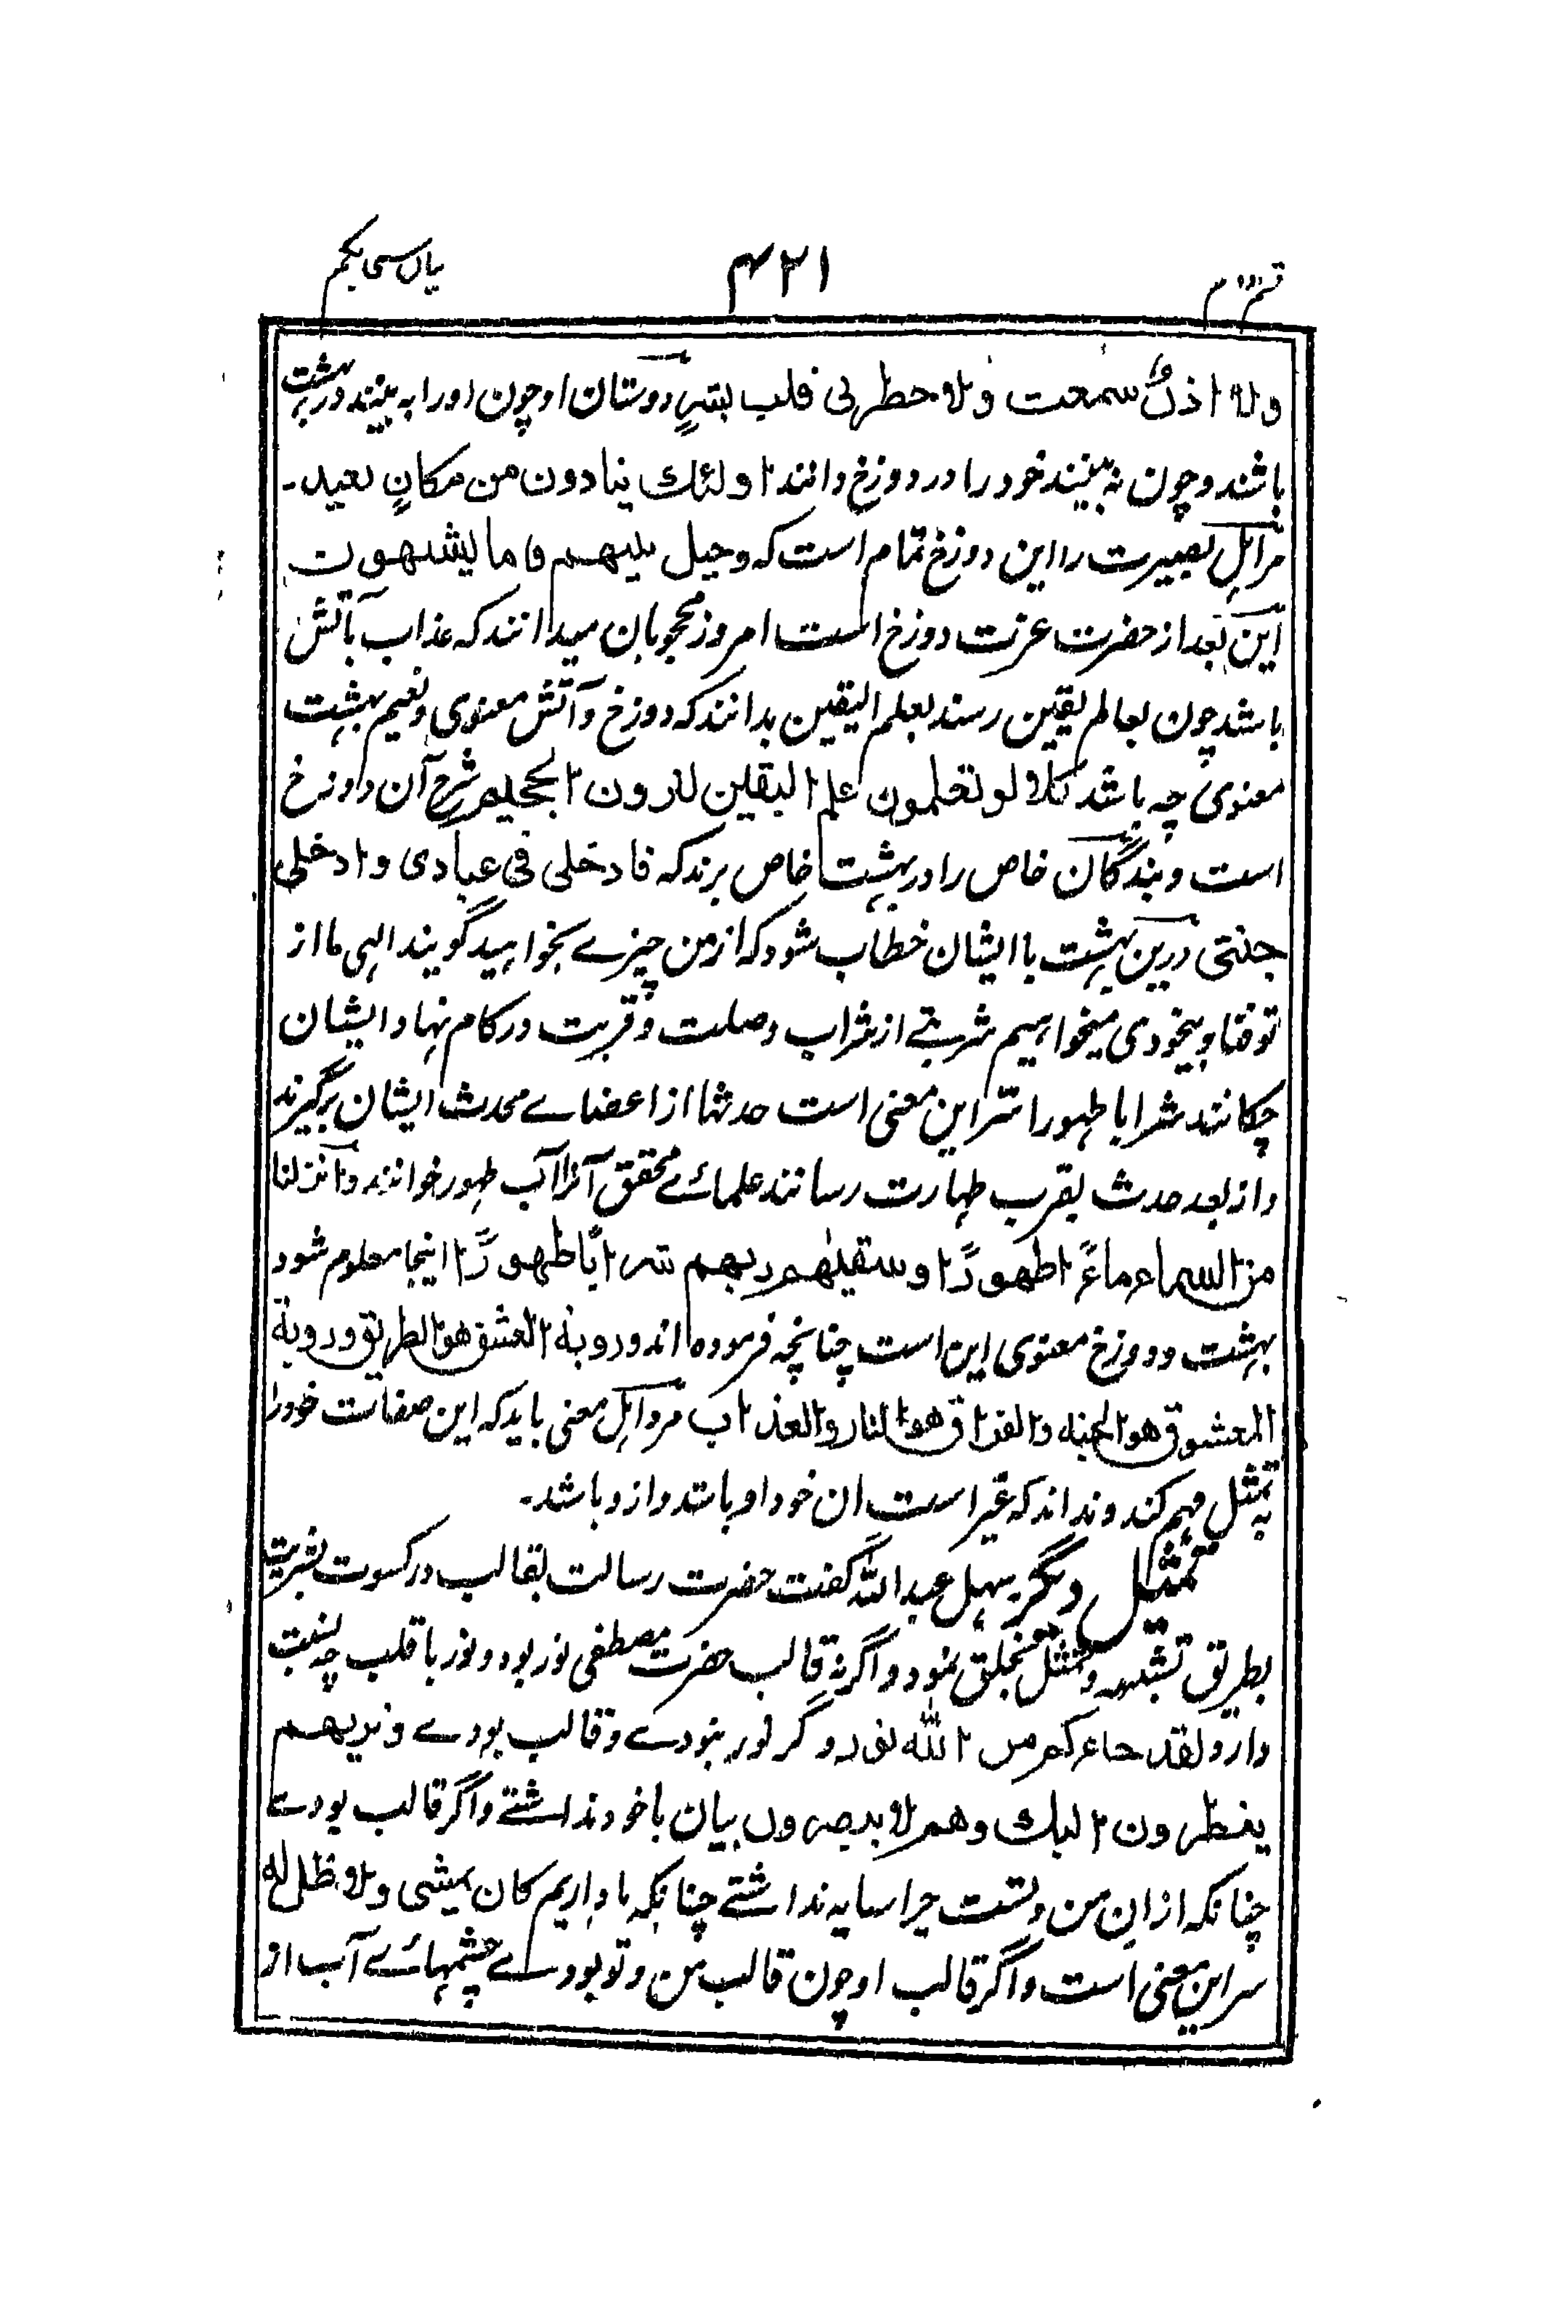 قسم دوم ۴۲۱ بیان سی یکم
ولا اذنٌ سمعت ولا خطر فی قلب بشرٍ دوستان او چون او را به بینند در بهشت
باشند و چون نه بینند خود را در دوزخ دانند اولئك ینادون من مکانٍ بعید۔
مر اہل بصیرت را این دوزخ تمام است کہ وحیل بینهم و ما یشتهون
این بعد از حضرت عزت دوزخ است امروز محجوبان میدانند کہ عذاب بآتش
باشد چون بعالم یقین رسند بعلم الیقین بدانند کہ دوزخ و آتش معنوی و نعیم بہشت
معنوی چہ باشد کلا لو تعلمون علم الیقین لترون الجحیم شرح آن دوزخ
است و بندگان خاص را در بہشت خاص برند کہ فادخلی فی عبادی وادخلی
جنتی درین بہشت با ایشان خطاب شود کہ از من چیزے بخواہید گویند الہی ما از
تو فنا و بیخودی میخواہیم شربتے از شراب وصلت و قربت در کام نہاد ایشان
چکانند شرابا طہورا سر این معنی است حدثہا از اعضاے محدث ایشان برگیرند
و از بعد حدث بقرب طہارت رسانند علمائے محقق آنرا آب طہور خوانند و انزلنا
من السماء ماءً طهورًا وسقیٰهم ربهم شرابًا طهورًا اینجا معلوم شود
بہشت و دوزخ معنوی این است چنانچہ فرمودہ اند ورویة العشق هو الطریق ورویة
المعشوق هو الجنة والفراق هو النار والعذاب مرو اہل معنی باید کہ این صفات خود را
بہ تمثل فہم کند و نداند کہ غیر است ان خود او باشد و از و باشد۔
تمثل دیگر سہل عبد اللہ گفت حضرت رسالت بقالب در کسوت بشریت
بطریق تشبہ و تمثل بخلق نمود و اگر نہ قالب حضرت مصطفی نور بود و نور با قلب چہ نسبت
دارد لقد جاءکم من اللہ نور و گر نور نبودے و قالب بودے و تریهم
ینظرون الیك وهم لا یبصرون بیان با خود نداشتے و اگر قالب بودے
چنانکہ از ان من و تست چرا سایہ نداشتے چنانکہ ما داریم کان یمشی ولا ظل له
سر این معنی است و اگر قالب او چون قالب من و تو بودے چشمہائے آب از